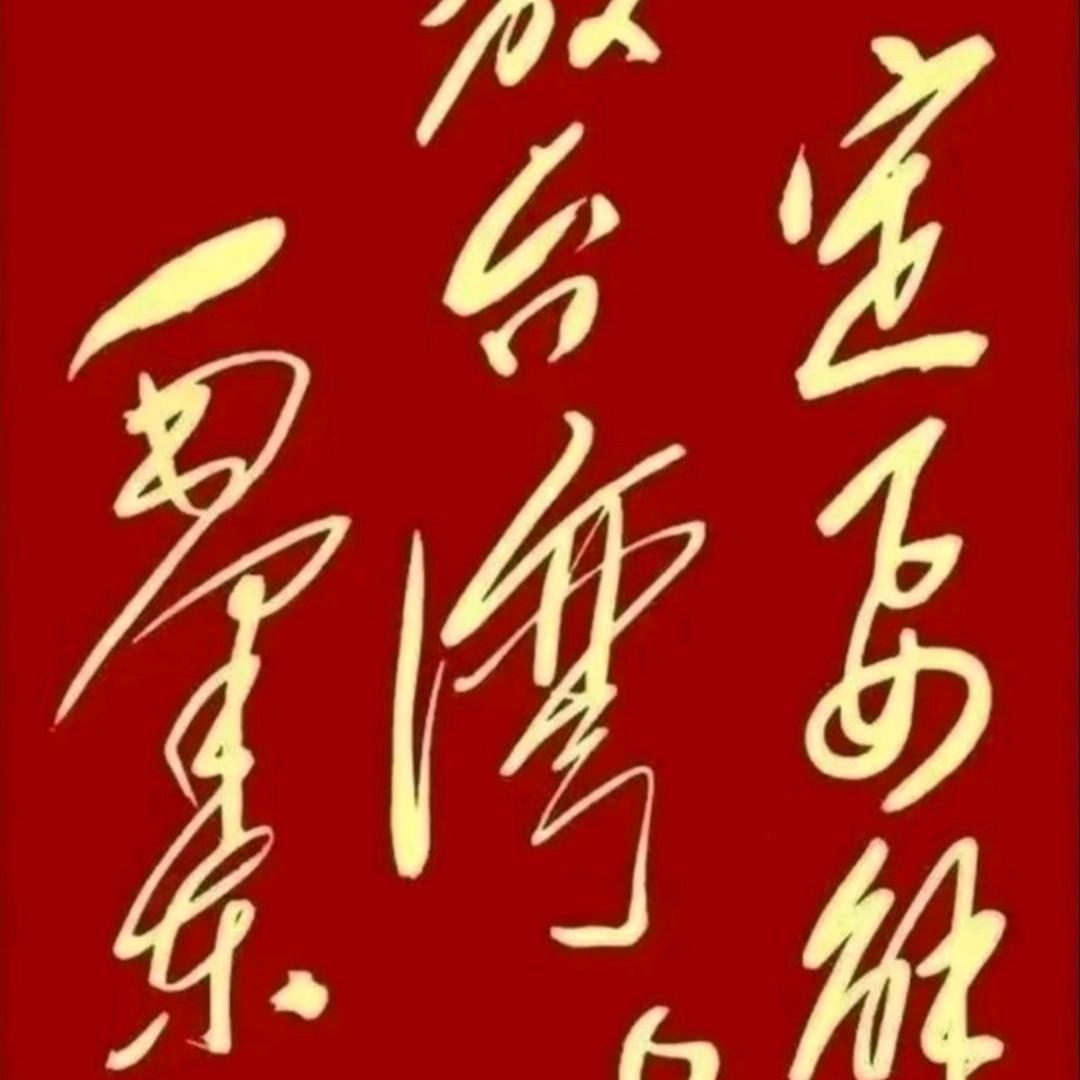 定要解
放台湾
毛泽东